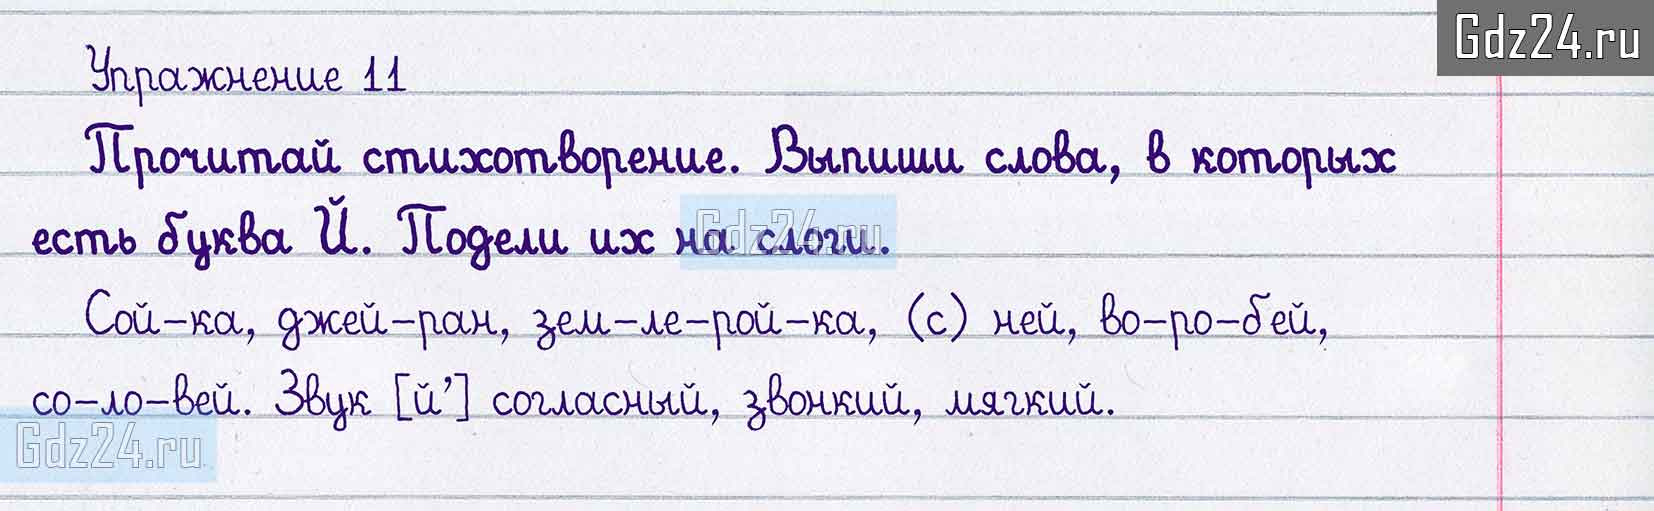 Gdz24.ru
Упражнение 11
Прочитай стихотворение. Выпиши слова, в которых
есть буква Й. Подели их на слоги.
Gdz24.ru
Сой-ка, джей-ран, зем-ле-рой-ка, (с) ней, во-ро-бей,
со-ло-вей. Звук [й’] согласный, звонкий, мягкий.
Gdz24.ru